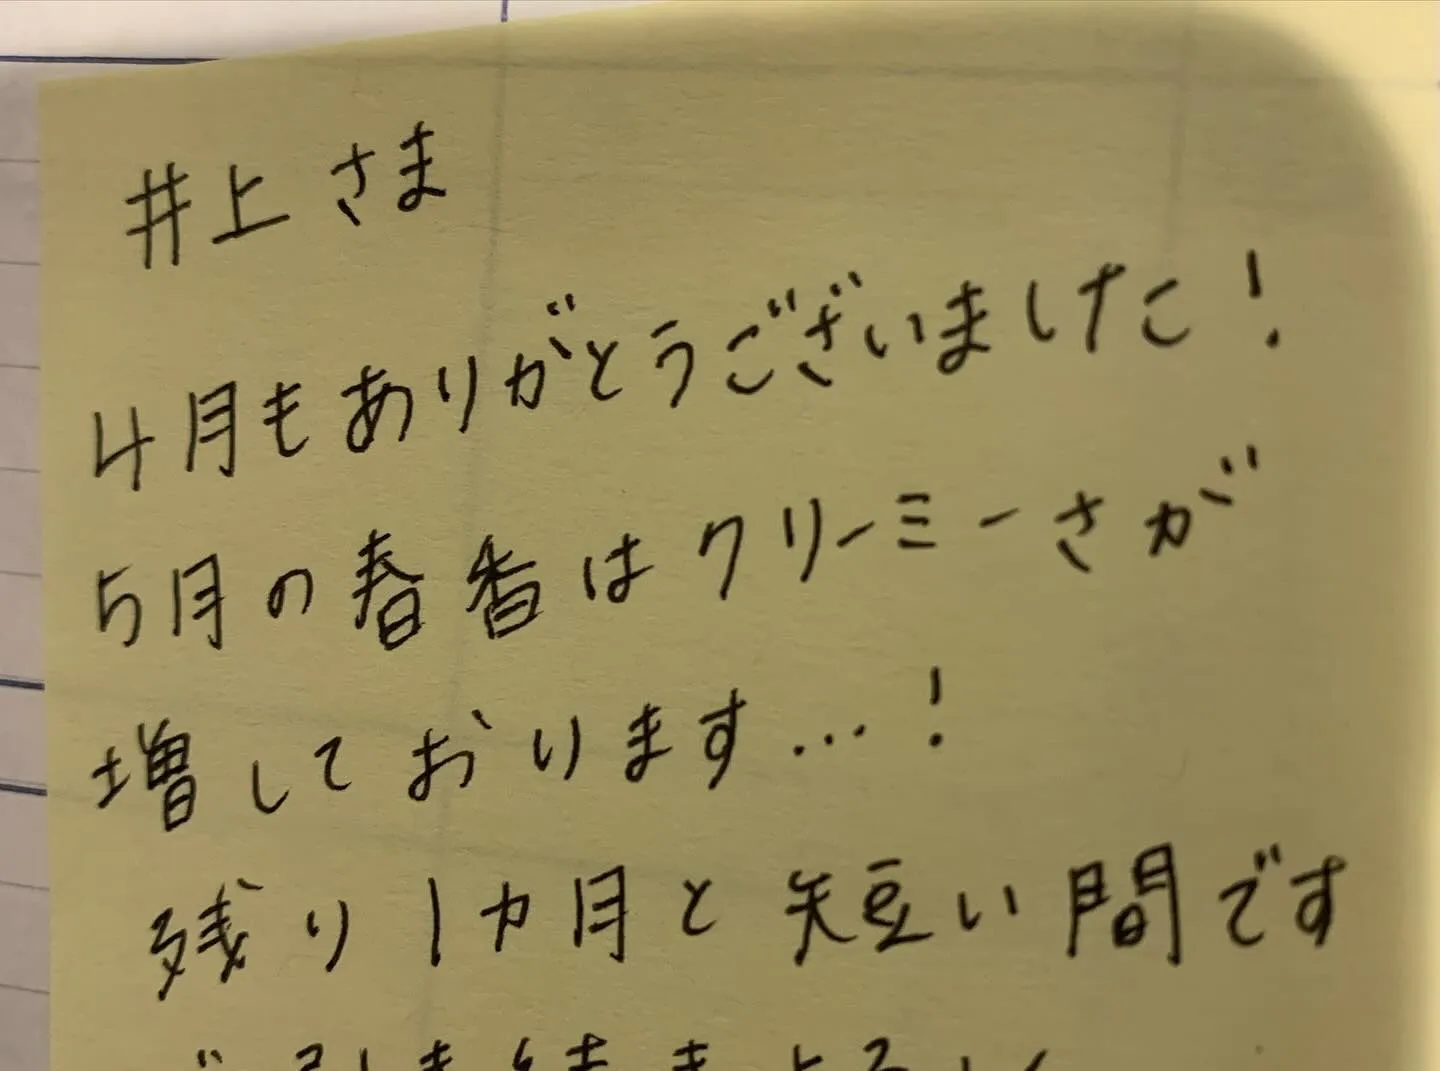 井上さま
4月もありがとうございました！
5月の春香はクリーミーさが
増しております…！
残り1カ月と短い間です
が引き続きよろしく